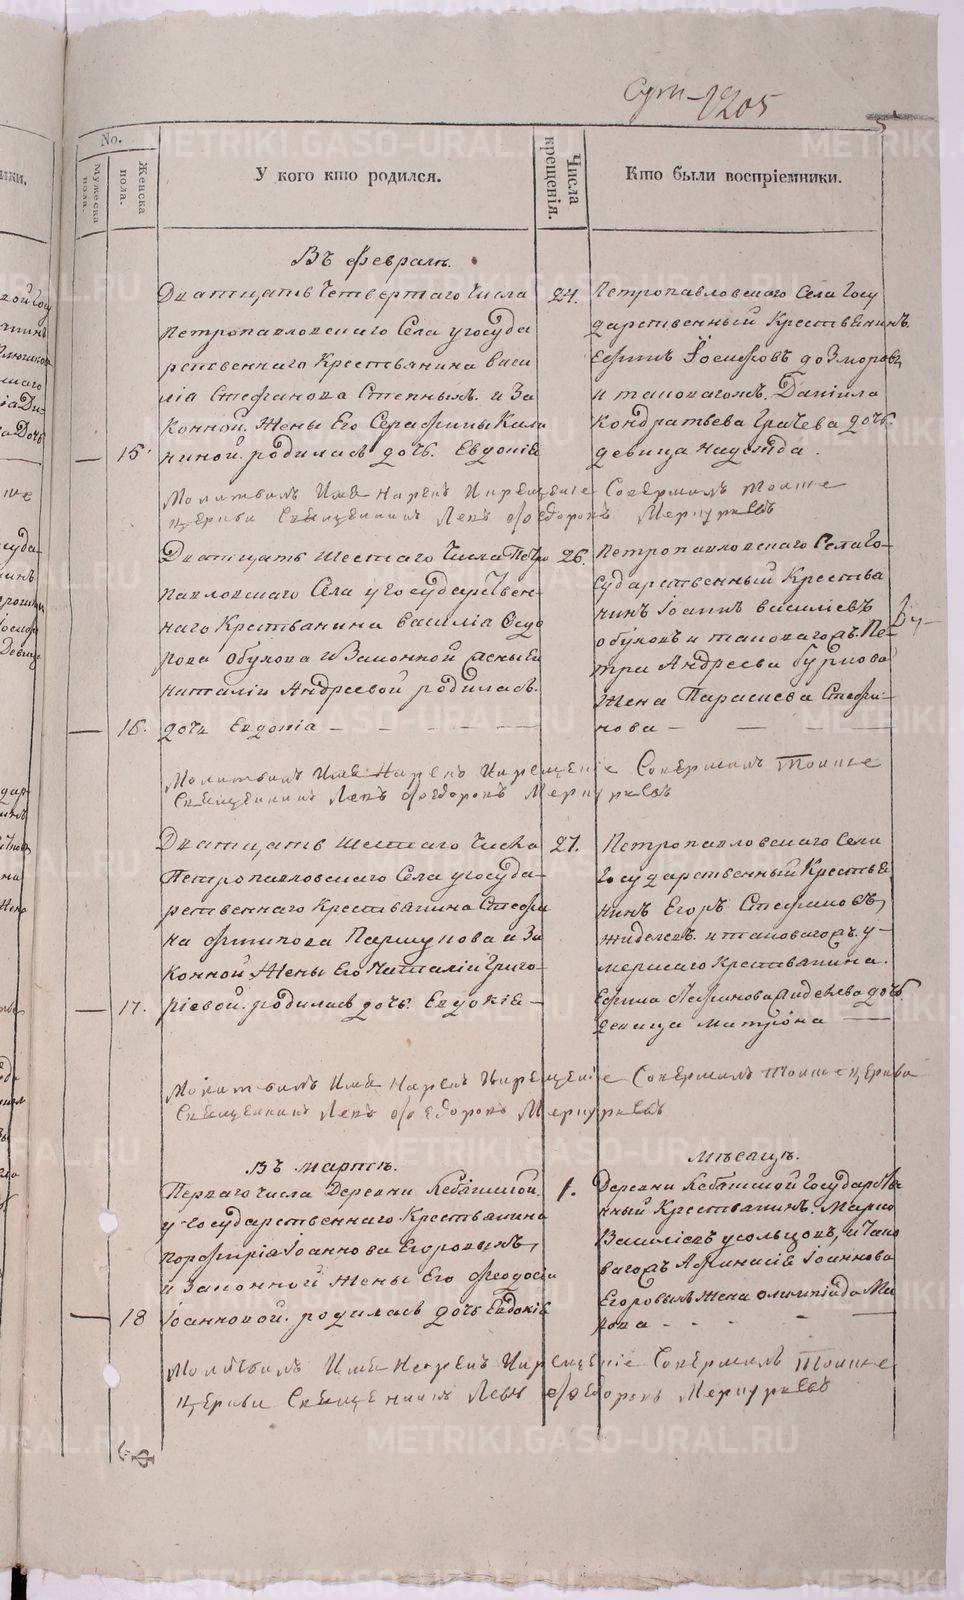 1205
No.
Мужеска пола.
Женска пола.
У кого кто родился.
Числа крещенія.
Кто были воспріемники.
Въ февралѣ.
Дватцать Четвертаго Числа
Петропавловскаго Села у госуда
рственнаго Крестьянина Васи
лія Стефанова Степныхъ и За
конной Жены Его Серафимы
15. родилась дочь Евдокія
24. Петропавловскаго Села Госу
дарственный Крестьянинъ
Іосифовъ
и таковагожъ Даніила
Кондратьева Грачева дочь
девица Надежда.
Молитвилъ Имя Нарекъ И крещеніе Совершилъ тоиже
церкви Священникъ Левъ Федоровъ Меркурьевъ
Дватцать шестаго Числа Петро
павловскаго Села у Государствен-
наго Крестьянина Василіа Седо
рова Обухова и Законной жены Ег
Наталіи Андреевой родилась
16. дочь Евдокіа
26. Петропавловскаго Села Го-
сударственный Крестья
нинъ Іоаннъ Василіевъ
Обуховъ и таковагожъ Пе-
тра Андреева Буркова
жена Параскева Стефа-
нова
Молитвилъ Имя Нарекъ И крещеніе Совершилъ Тоиже
Священникъ Левъ Федоровъ Меркурьевъ
Дватцать шестаго Числа
Петропавловскаго Села у госуда-
рственнаго Крестьянина Стефа
на Паршукова и За
конной Жены Его Наталіи Григо-
17. ріевой родилась дочь Евдокія
27. Петропавловскаго Села
Государственный Крестья
нинъ Егоръ Стефановъ
и таковагожъ у-
мершаго Крестьянина
дочь
девица Матрона
Молитвилъ Имя Нарекъ И крещеніе Совершилъ тоиже церкви
Священникъ Левъ Федоровъ Меркурьевъ
Въ мартѣ. Мѣсяцѣ.
Перваго числа Деревни
у Государственнаго Крестьянина
Порфирія Іоаннова Егоровыхъ
и Законной Жены Его Феодосіи
18 Іоанновой родилась дочь Евдокія
1. Деревни Государстве
нный Крестьянинъ Марко
Василіевъ Усольцовъ, и тако
вагожъ Афанасія Іоаннова
Егоровыхъ жена Олимпіада Ма
рова
Молитвилъ Имя Нарекъ И крещеніе Совершилъ Тоиже
церкви Священникъ Левъ Федоровъ Меркурьевъ
METRIKI.GASO-URAL.RU